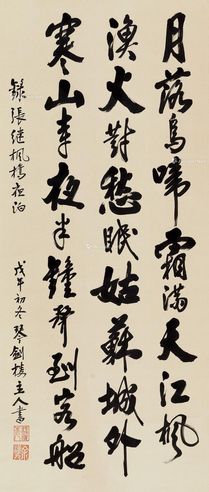 月落烏啼霜滿天江楓
漁火對愁眠姑蘇城外
寒山寺夜半鐘聲到客船
錄張继楓橋夜泊
戊午初冬琴劍樓主人書